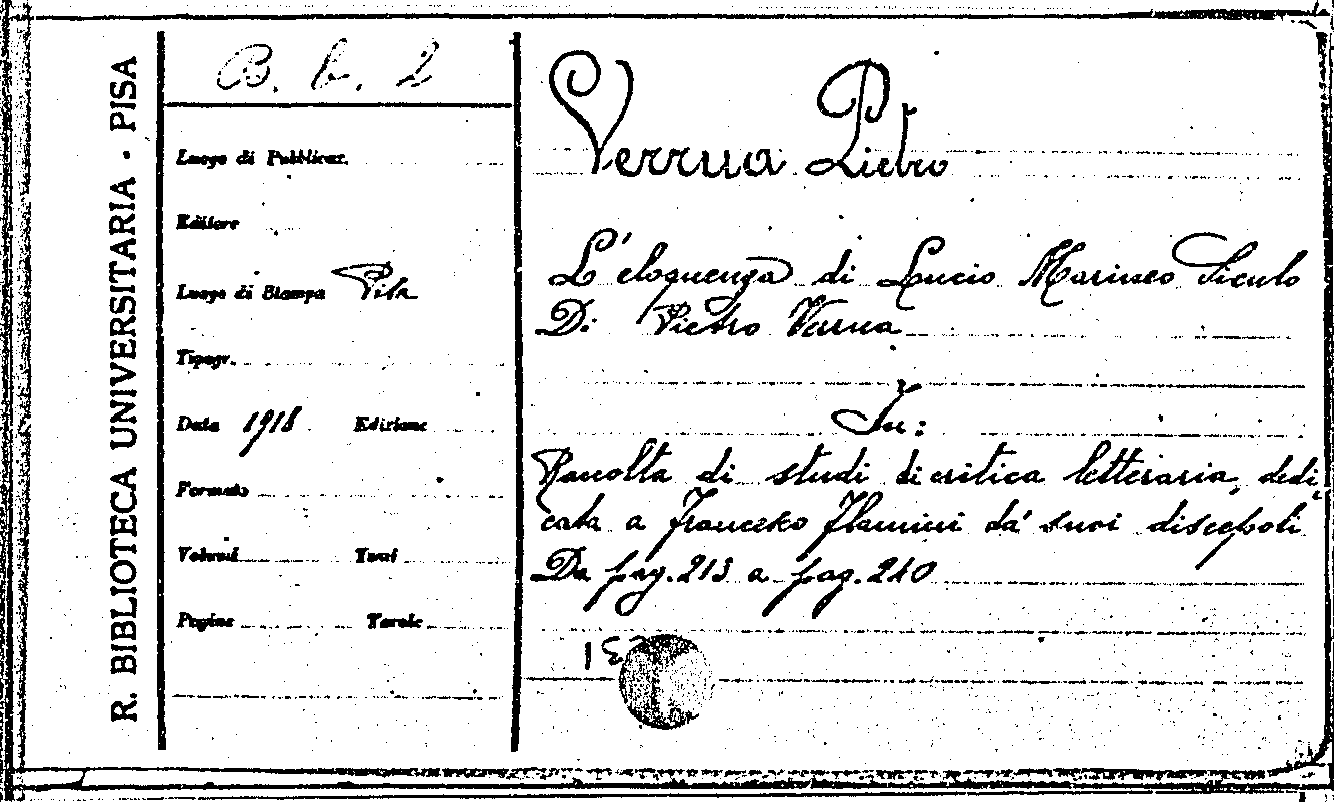 R. BIBLIOTECA UNIVERSITARIA · PISA
B. b. 2
Luogo di Pubblicaz.
Editore
Luogo di Stampa Pisa
Tipogr.
Data 1918 Edizione
Formato
Volumi Tomi
Pagine Tavole
Verrua Pietro
L'eloquenza di Lucio Marineo Siculo
Di Pietro Verrua
In:
Raccolta di studi di critica letteraria, dedi,
cata a Francesco Flamini da' suoi discepoli
Da pag. 213 a pag.